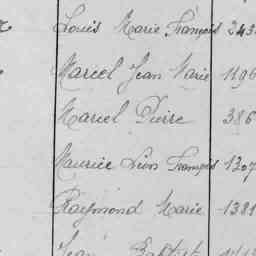 Louis Marie François 243
Marcel Jean Marie 1196
Marcel Pierre 386
Maurice Léon François 1307
Raymond Marie 1381
Jean Baptist